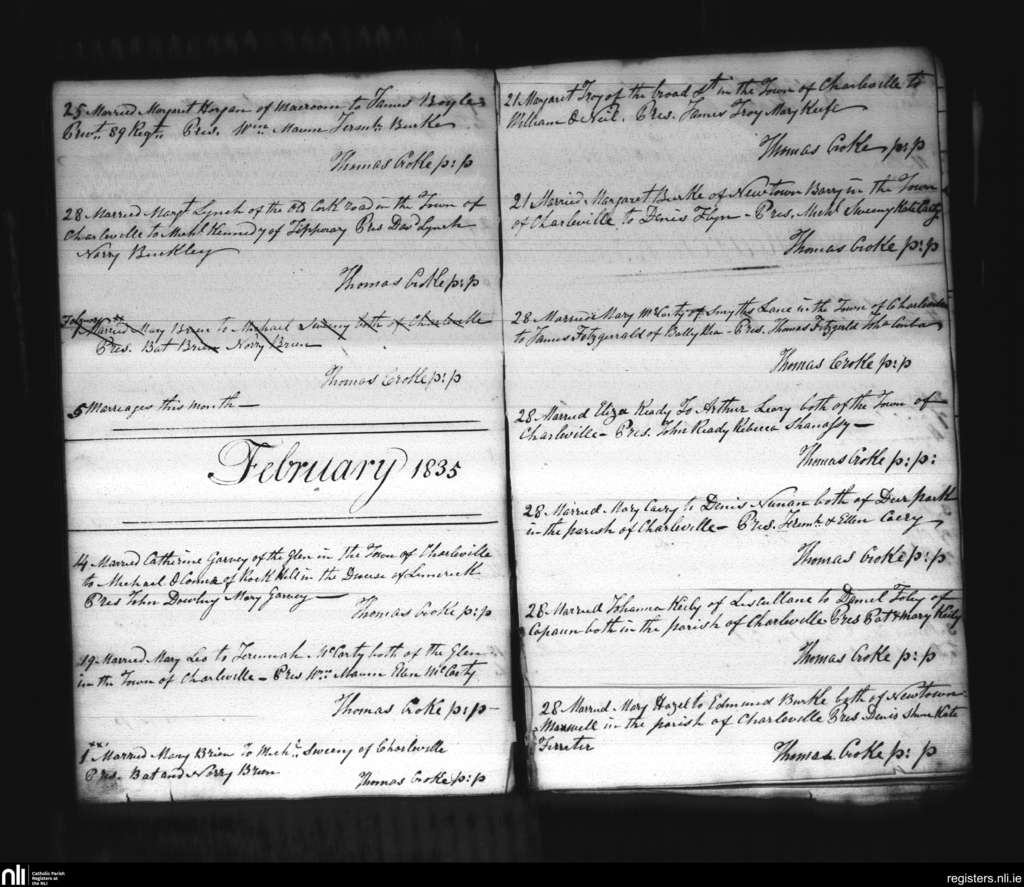 25 Married Margret Horgan of Macroom to James Boyle
89 Regt. Pres. Wm. Maume Jeremh. Burke
Thomas Croke p:p
28 Married Margt Lynch of the old Cork road in the Town of
Charleville to Michl Kennedy of Tipperary Pres Dad Lynch
Norry Buckley
Thomas Croke p:p
February
1 Married Mary Brien to Michael Sweeny both of Charleville
Pres. Bat Brien Norry Brien
Thomas Croke p:p
5 Marriages this month
February 1835
14 Married Catherine Garvey of the Glen in the Town of Charleville
to Michael O Connor of Rock Hill in the Diocese of Limerick
Pres John Dowling Mary Garvey
Thomas Croke p:p
19 Married Mary Leo to Jeremiah McCarty both of the Glen
in the Town of Charleville - Pres Wm Maume Ellen McCarty
Thomas Croke p:p
1 Married Mary Brien to Michl. Sweeny of Charleville
Pres. Bat and Norry Brien
Thomas Croke p:p
21 Margaret Troy of the broad St in the Town of Charleville to
William O Neil. Pres. James Troy Mary Keefe
Thomas Croke p:p
21 Married Margaret Burke of Newtown Barry in the Town
of Charleville to Denis Flyn - Pres. Michl Sweeny Kate Carty
Thomas Croke p:p
28 Married Mary McCarty of Smyths Lane in the Town of Charleville
to James Fitzgerald of Ballyhea - Pres. Thomas Fitzgerald
Thomas Croke p:p
28 Married Eliza Ready To Arthur Leary both of the Town of
Charleville - Pres. John Ready Rebecca Shanassy
Thomas Croke p:p:
28 Married Mary Caery to Denis Nunan both of Deer park
in the parish of Charleville - Pres. Jeremh. & Ellen Caery
Thomas Croke p:p
28 Married Johanna Kiely of Liscullane to Daniel Foley of
Copaun both in the parish of Charleville Pres Pat & Mary Kiely
Thomas Croke p:p
28 Married Mary Hazel to Edmund Burke both of Newtown
Maxwell in the parish of Charleville Pres Denis Kate
Ferriter
Thomas Croke p:p
nli
Catholic Parish
Registers at
the NLI
registers.nli.ie